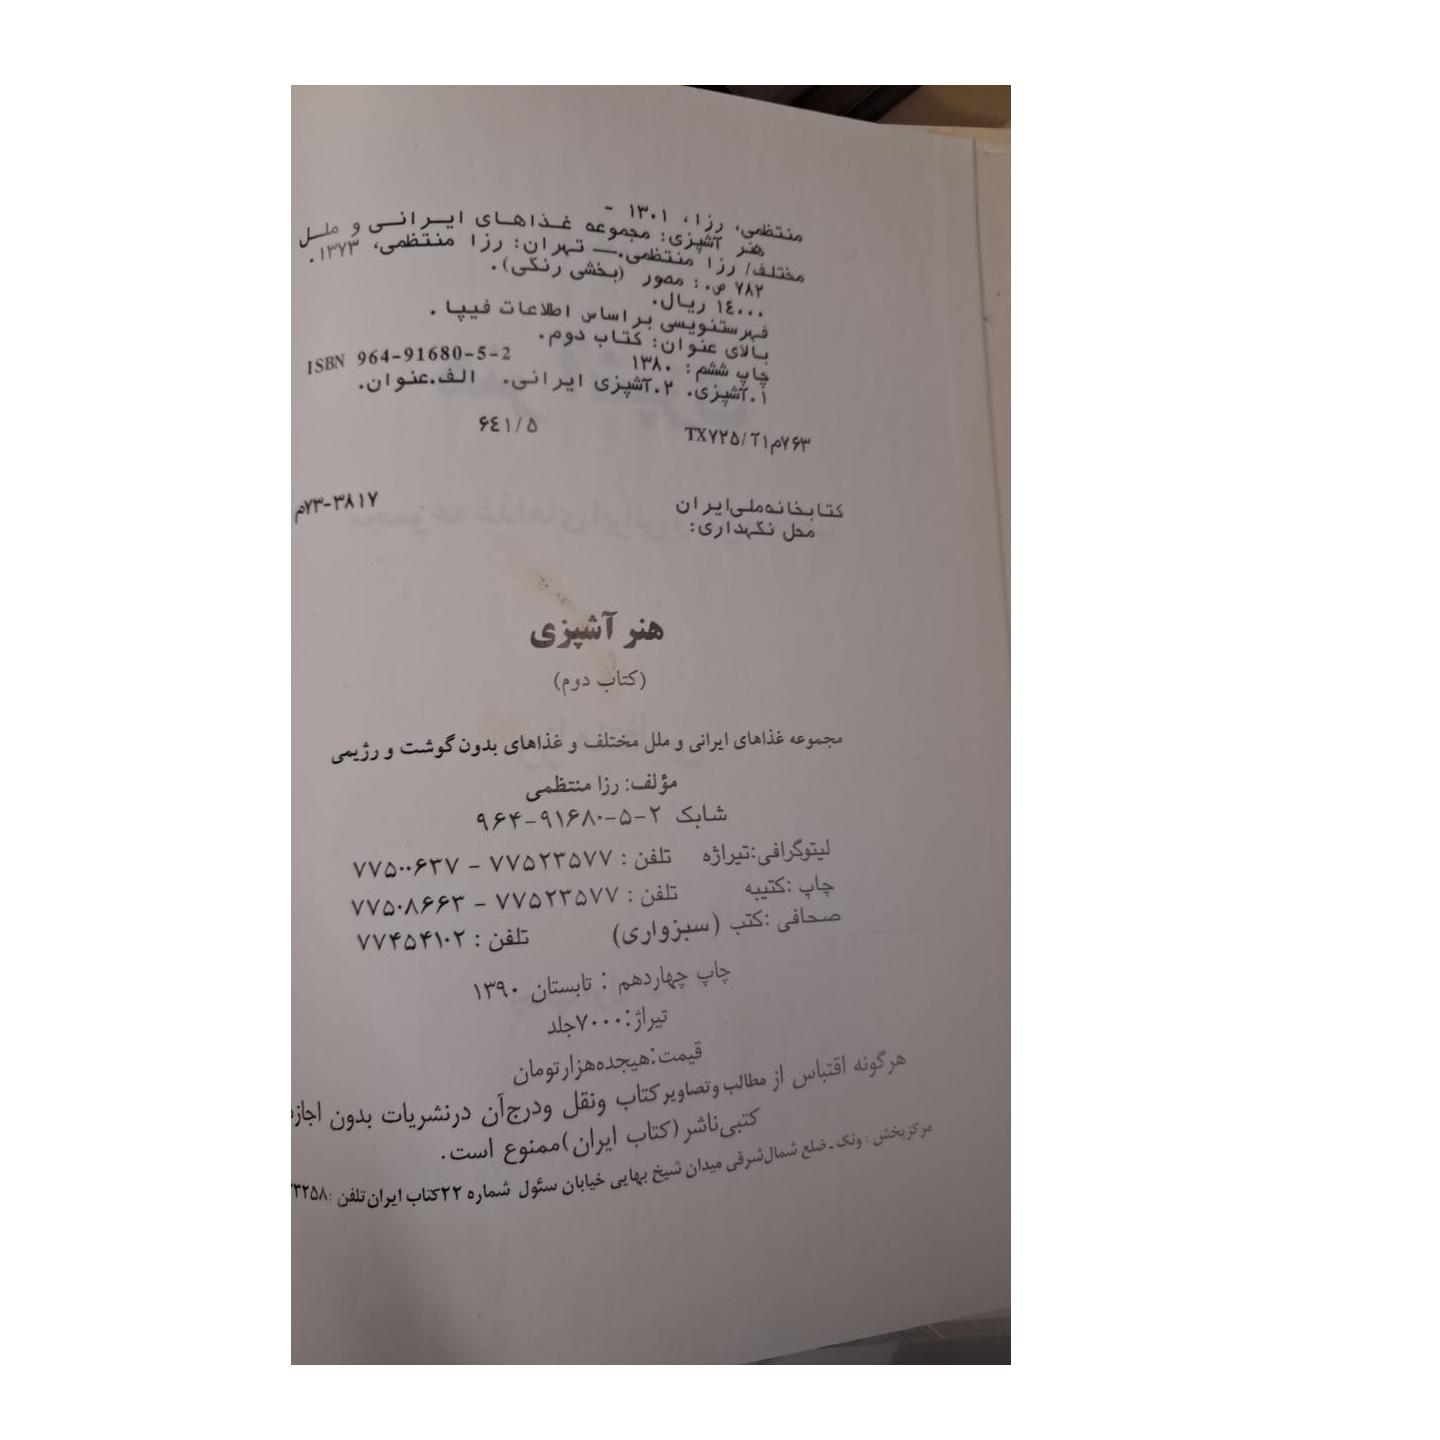 منتظمی، رزا، ۱۳۰۱ -
هنر آشپزی: مجموعه غذاهای ایرانی و ملل
مختلف/ رزا منتظمی.— تهران: رزا منتظمی، ۱۳۷۳.
۷۸۲ ص.: مصور (بخشی رنگی).
۱٤۰۰۰ ریال.
فهرستنویسی براساس اطلاعات فیپا.
بالای عنوان: کتاب دوم.
ISBN 964-91680-5-2
چاپ ششم: ۱۳۸۰
۱.آشپزی. ۲.آشپزی ایرانی. الف.عنوان.
۶٤۱/۵
TX۷۲۵/آ۱م۷۶۳
کتابخانه‌ملی‌ایران
م۷۳-۳۸۱۷
محل نگهداری:
هنر آشپزی
(کتاب دوم)
مجموعه غذاهای ایرانی و ملل مختلف و غذاهای بدون گوشت و رژیمی
مؤلف: رزا منتظمی
شابک ۲-۵-۹۱۶۸۰-۹۶۴
لیتوگرافی:تیراژه تلفن : ۷۷۵۲۳۵۷۷ - ۷۷۵۰۰۶۳۷
چاپ :کتیبه تلفن : ۷۷۵۲۳۵۷۷ - ۷۷۵۰۸۶۶۳
صحافی :کتب (سبزواری) تلفن : ۷۷۴۵۴۱۰۲
چاپ چهاردهم : تابستان ۱۳۹۰
تیراژ:۷۰۰۰جلد
قیمت:هیجده‌هزارتومان
هرگونه اقتباس از مطالب وتصاویر کتاب ونقل ودرج‌آن درنشریات بدون
کتبی‌ناشر(کتاب ایران)ممنوع است.
مرکزپخش : ونک ـ ضلع شمال‌شرقی میدان شیخ بهایی خیابان سئول شماره ۲۲کتاب ایران‌تلفن :